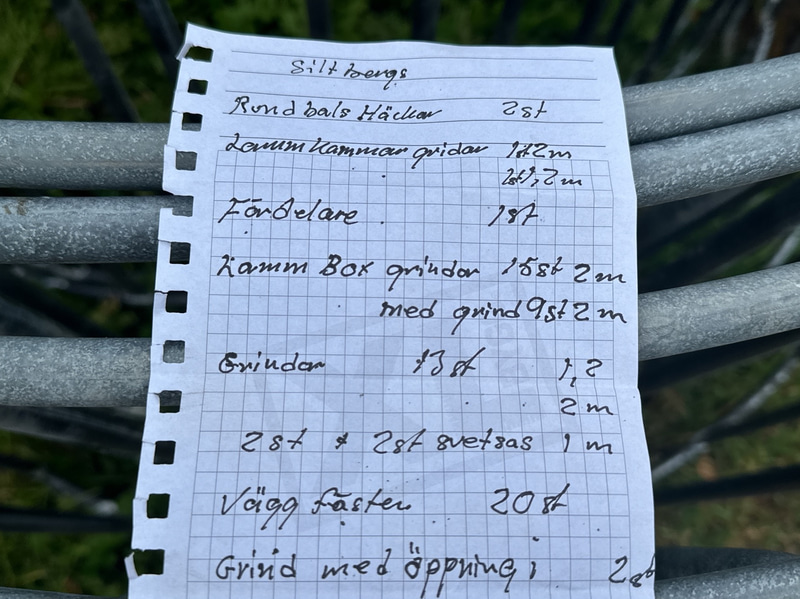 Siltbergs
Rundbals Häckar 2st
Lammkammar gridar 1st 2m
1st 1,2 m
Fördelare 1st
Lamm Box grindar 15st 2 m
med grind 9st 2 m
Grindar 13 st 1,2
2 m
2 st + 2st svetsas 1 m
Vägg fästen 20 st
Grind med öppning i 2st